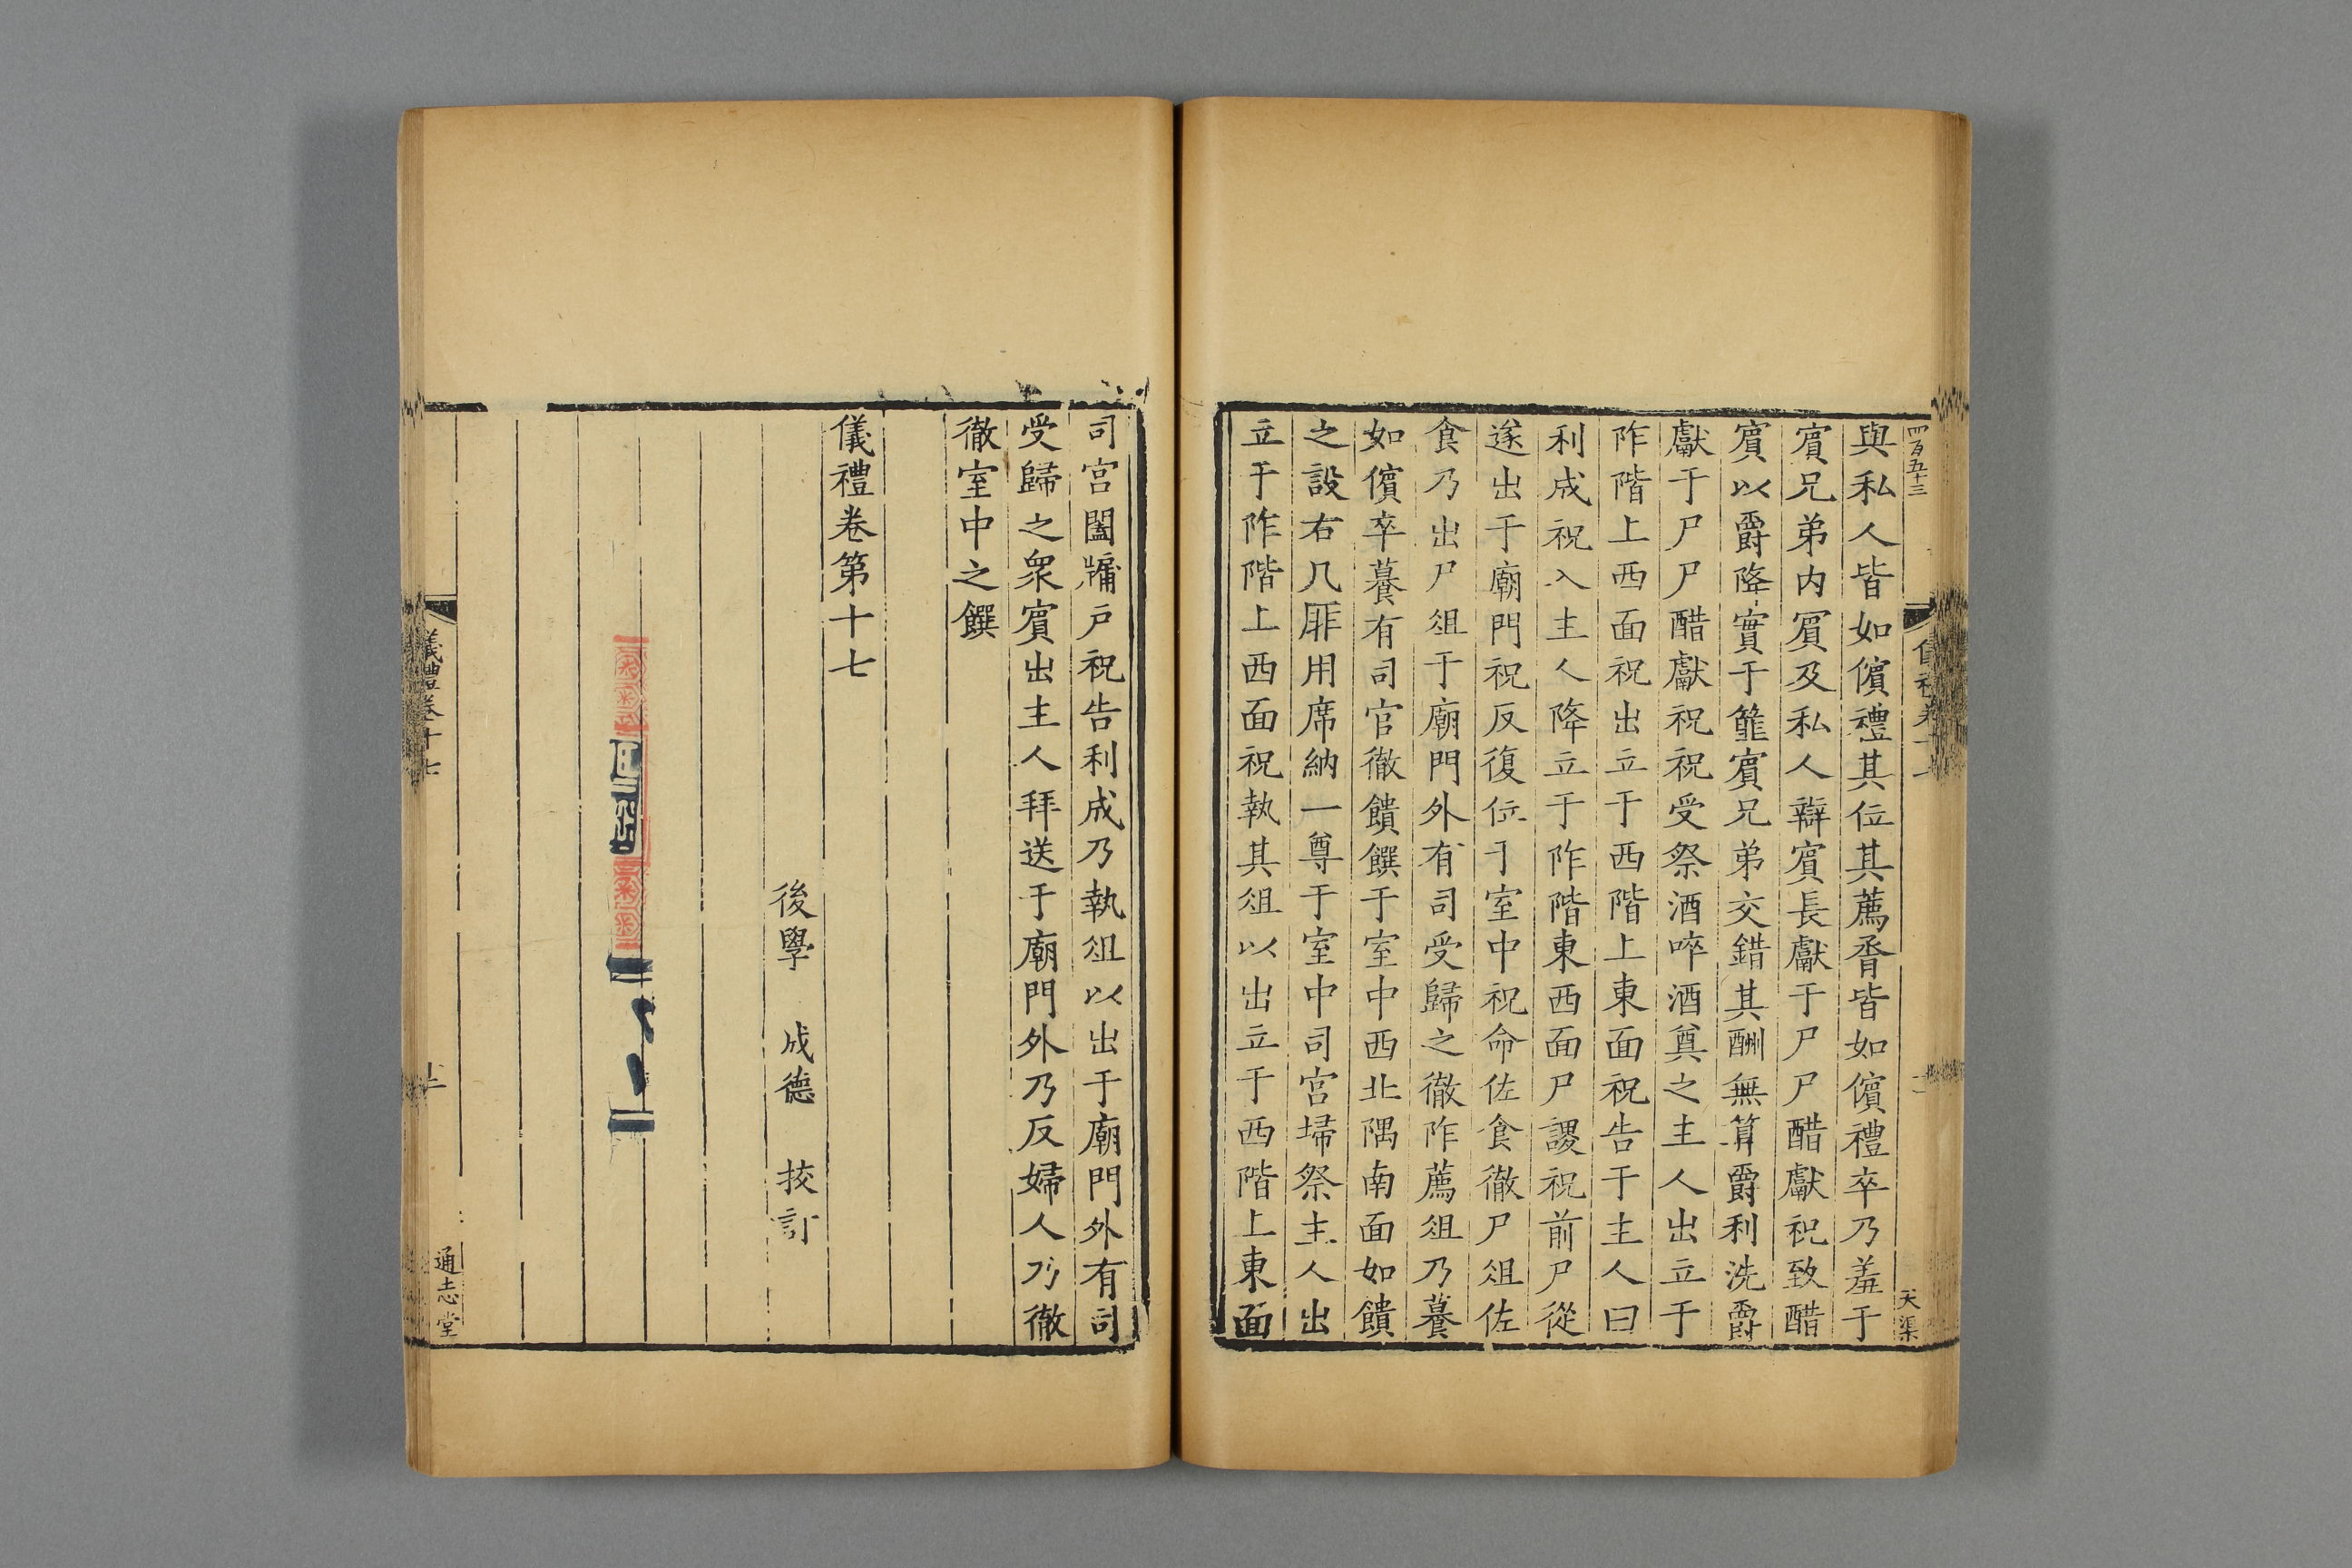 四百五十三
天渠
與私人皆如儐禮其位其薦脀皆如儐禮卒乃羞于
賔兄弟内賔及私人辯賔長獻于尸尸醋獻祝致醋
賔以爵降實于篚賔兄弟交錯其酬無筭爵利洗爵
獻于尸尸醋獻祝祝受祭酒啐酒奠之主人出立于
阼階上西面祝出立于西階上東面祝告于主人曰
利成祝入主人降立于阼階東西面尸謖祝前尸從
遂出于廟門祝反復位于室中祝命佐食徹尸俎佐
食乃出尸俎于廟門外有司受歸之徹阼薦俎乃養
如儐卒養有司官徹饋饌于室中西北隅南面如饋
之設右几厞用席納一尊于室中司宫埽祭主人出
立于阼階上西面祝執其俎以出立于西階上東面
司宫闔牖戸祝告利成乃執俎以出于廟門外有司
受歸之衆賔出主人拜送于廟門外乃反婦人乃徹
徹室中之饌
儀禮卷第十七
後學 成德 挍訂
儀禮卷十七
通志堂